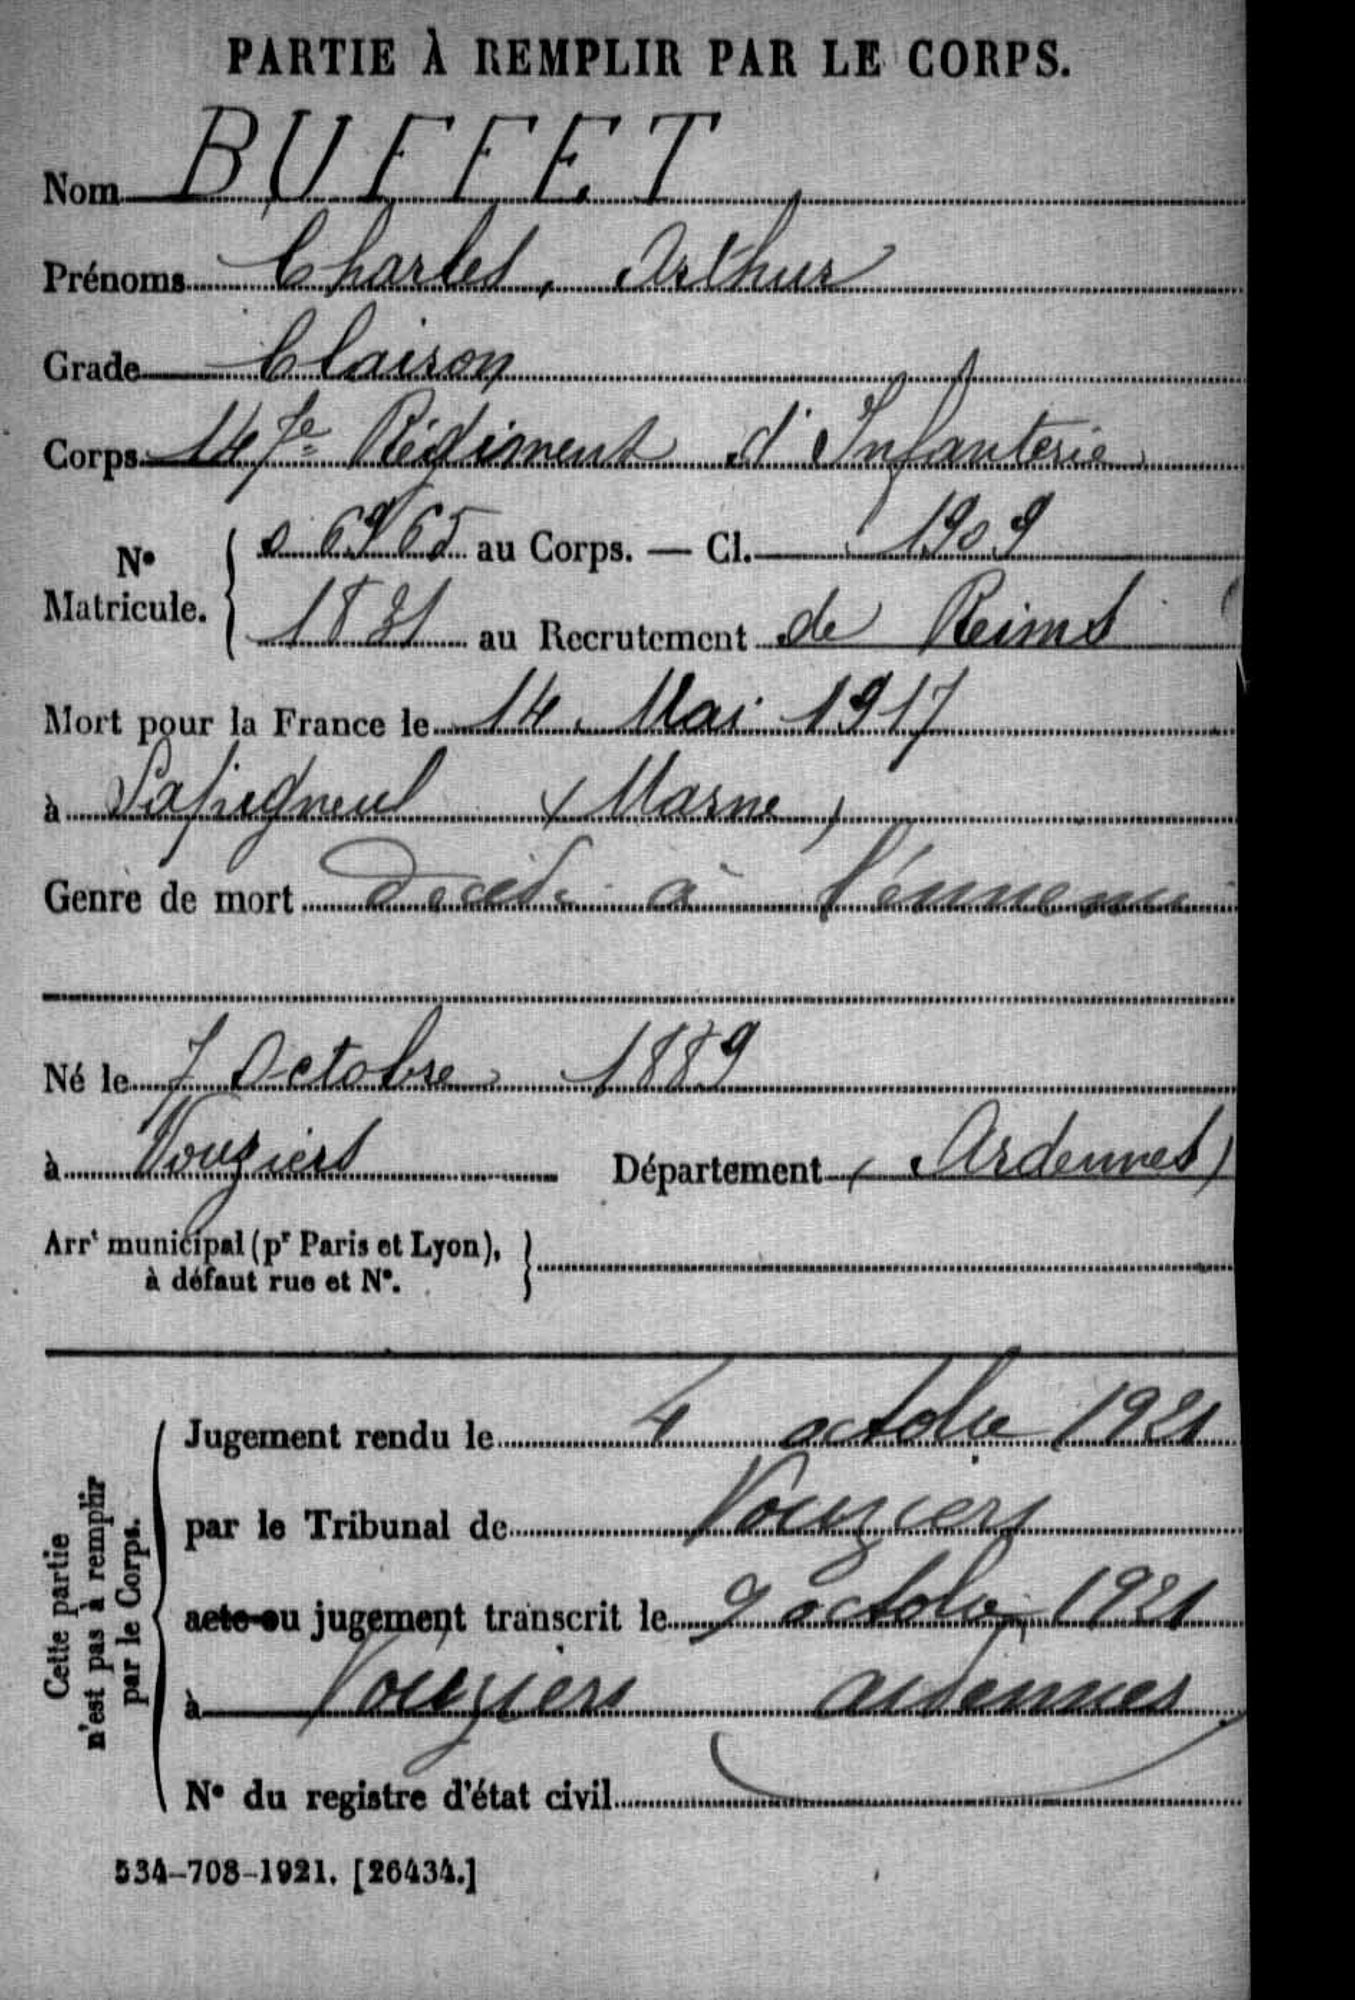 PARTIE À REMPLIR PAR LE CORPS.
Nom BUFFET
Prénoms Charles, Arthur
Grade Clairon
Corps 147e Régiment d'Infanterie
N° Matricule. { 0 6965 au Corps. — Cl. 1909
1831 au Recrutement de Reims
Mort pour la France le 14 Mai 1917
à Sapigneul (Marne)
Genre de mort décédé à l'énnemi
Né le 7 Octobre 1889
à Vouziers Département (Ardennes)
Arrt municipal (pr Paris et Lyon),
à défaut rue et N°.
Cette partie
n'est pas à remplir
par le Corps.
Jugement rendu le 4 octobre 1921
par le Tribunal de Vouziers
acte ou jugement transcrit le 9 octobre 1921
à Vouziers ardennes
N° du registre d'état civil
534-708-1921. [26434.]